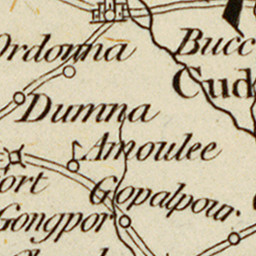 Ordonna
Bucc
Cud
Dumna
Amoulee
ort
Gopalpour
Gongpor